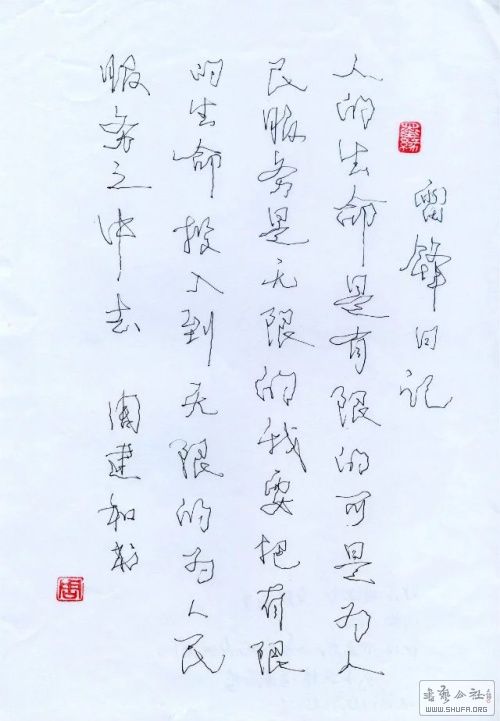 雷锋日记
人的生命是有限的可是为人
民服务是无限的我要把有限
的生命投入到无限的为人民
服务之中去 周建和
周
公社
WWW.SHUFA.ORG